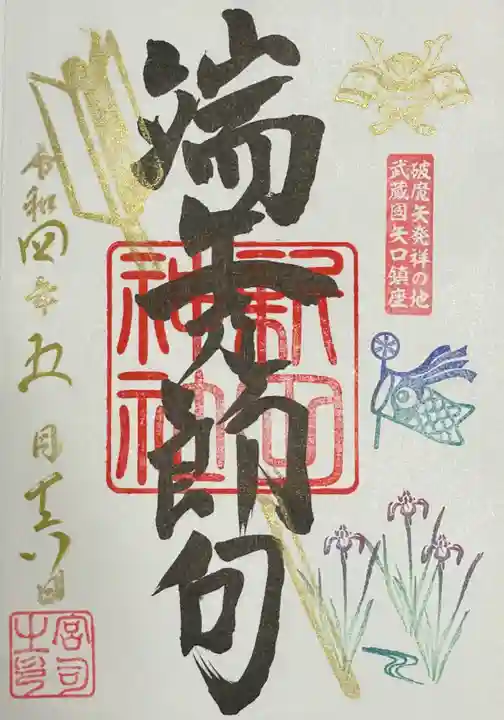 破魔矢発祥の地
武蔵國矢口鎮座
端午乃節句
新田
神社
令和四年五月日
宮司
之印